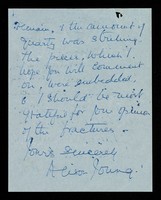 remain, & the amount of
quartz was striking.
The pieces, which I
hope you will comment
on, were embedded.
& I should be most
grateful for your opinion
of the fractures.
Yours sincerely
Young.